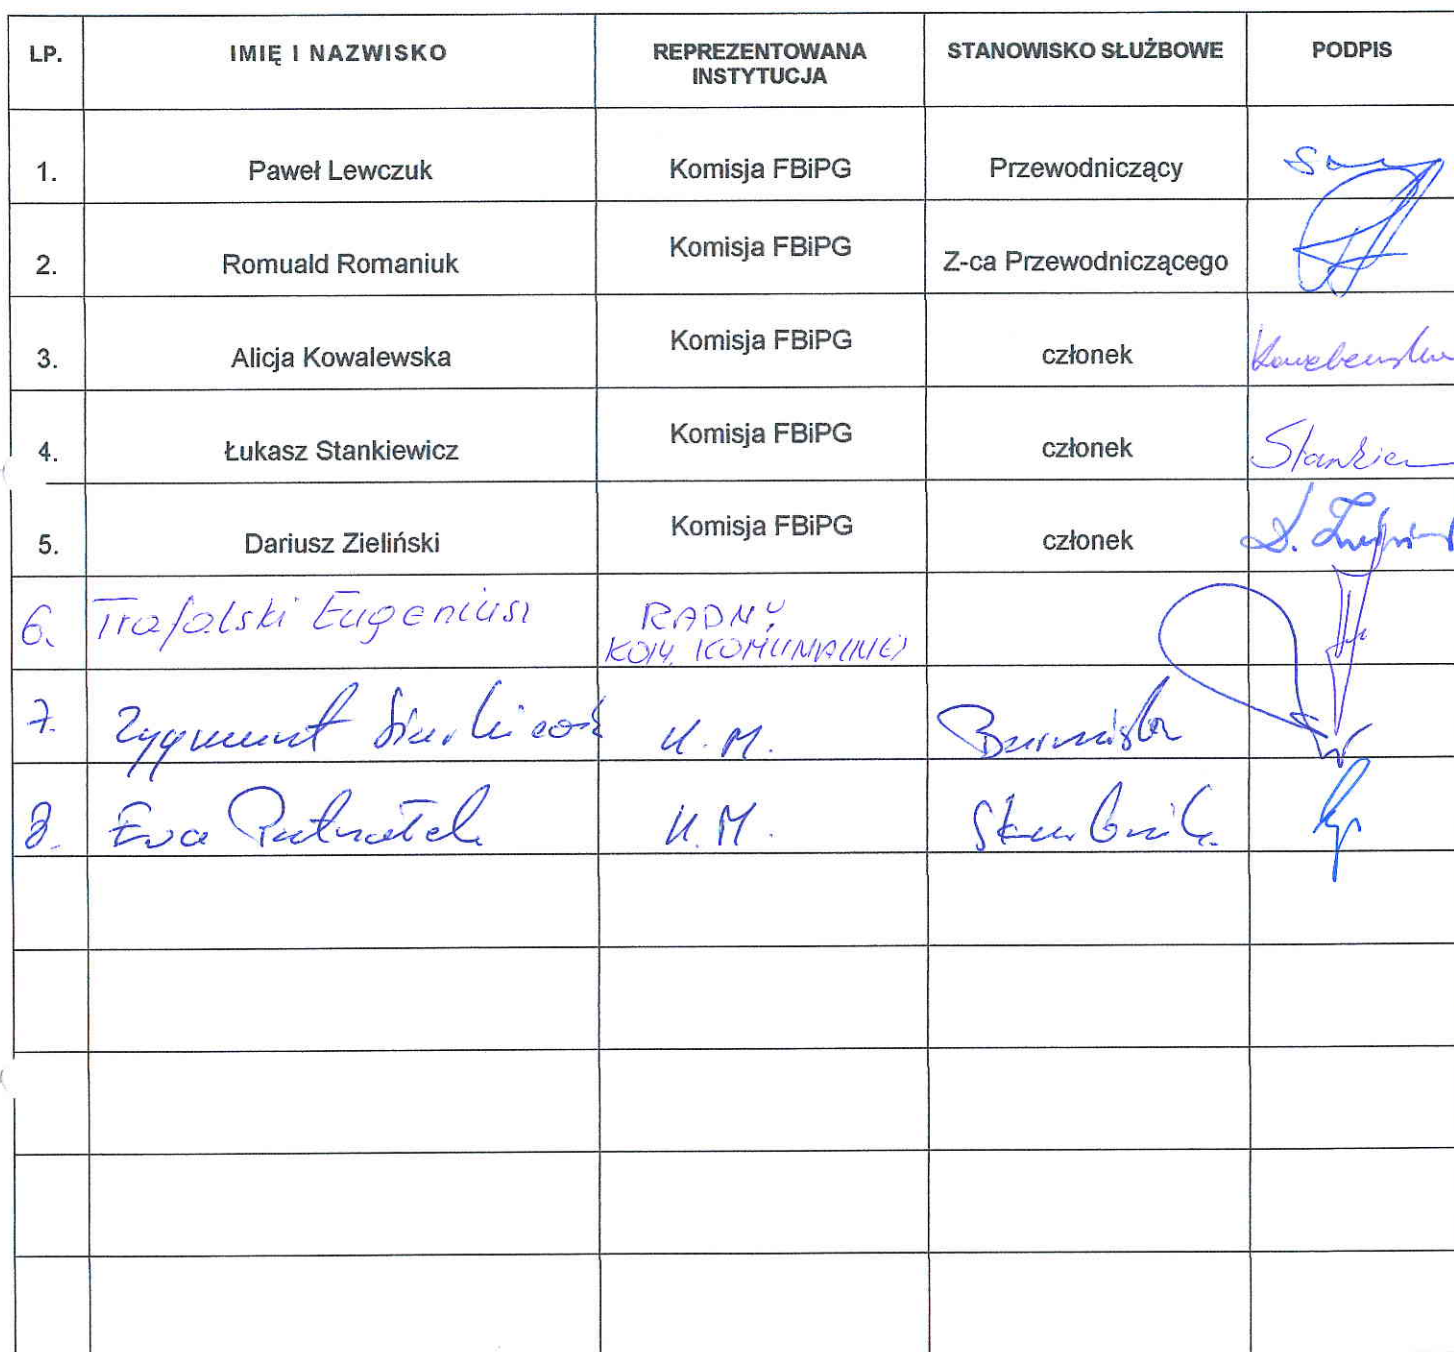 LP. IMIĘ I NAZWISKO REPREZENTOWANA INSTYTUCJA STANOWISKO SŁUŻBOWE PODPIS
1. Paweł Lewczuk Komisja FBiPG Przewodniczący
2. Romuald Romaniuk Komisja FBiPG Z-ca Przewodniczącego
3. Alicja Kowalewska Komisja FBiPG członek Kowalewska
4. Łukasz Stankiewicz Komisja FBiPG członek Stankie
5. Dariusz Zieliński Komisja FBiPG członek
6. Trafalski Eugeniusz RADNY
KOM. KOMUNALNEJ
7. Zygmunt U.M. Burmistrz
8. Ewa U.M. Skarbnik